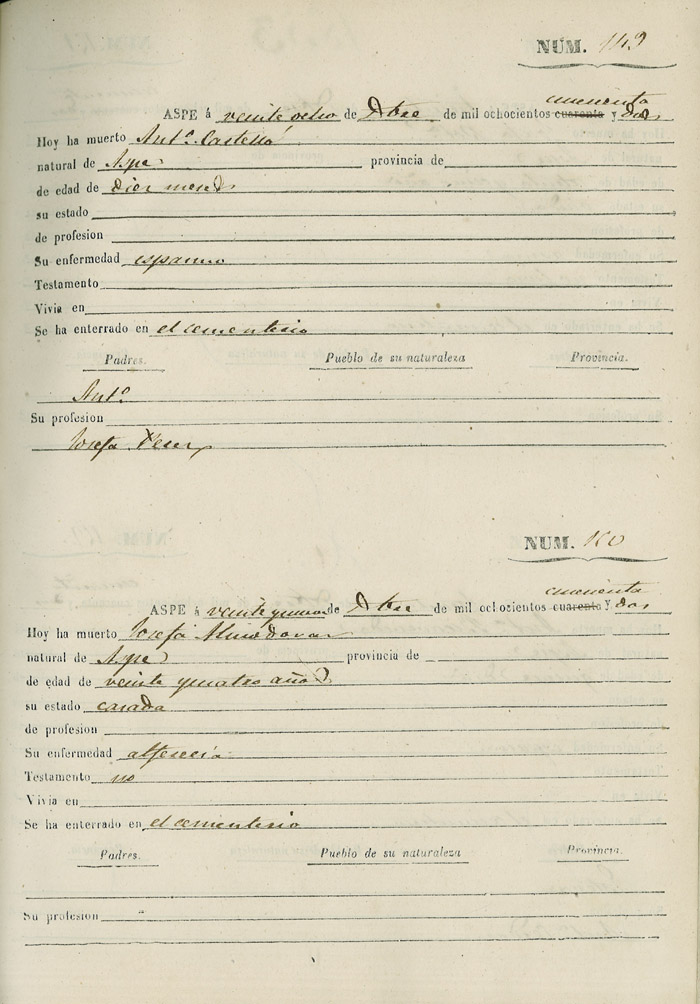 NÚM. 149
cincuenta
ASPE á veinte ocho de Dbre de mil ochocientos cuarenta y dos
Hoy ha muerto Antº. Castelló
natural de Aspe provincia de
de edad de diez meses
su estado
de profesion
Su enfermedad espasmo
Testamento
Vivia en
Se ha enterrado en el cementerio
Padres. Pueblo de su naturaleza Provincia.
Antº
Su profesion
Josefa Perez
NUM.
cincuenta
ASPE á veinte y nueve de Dbre de mil ochocientos cuarenta y dos
Hoy ha muerto Josefa Almodovar
natural de Aspe provincia de
de edad de veinte y cuatro años
su estado casada
de profesion
Su enfermedad alferecia
Testamento no
Vivia en
Se ha enterrado en el cementerio
Padres. Pueblo de su naturaleza Provincia.
Su profesion